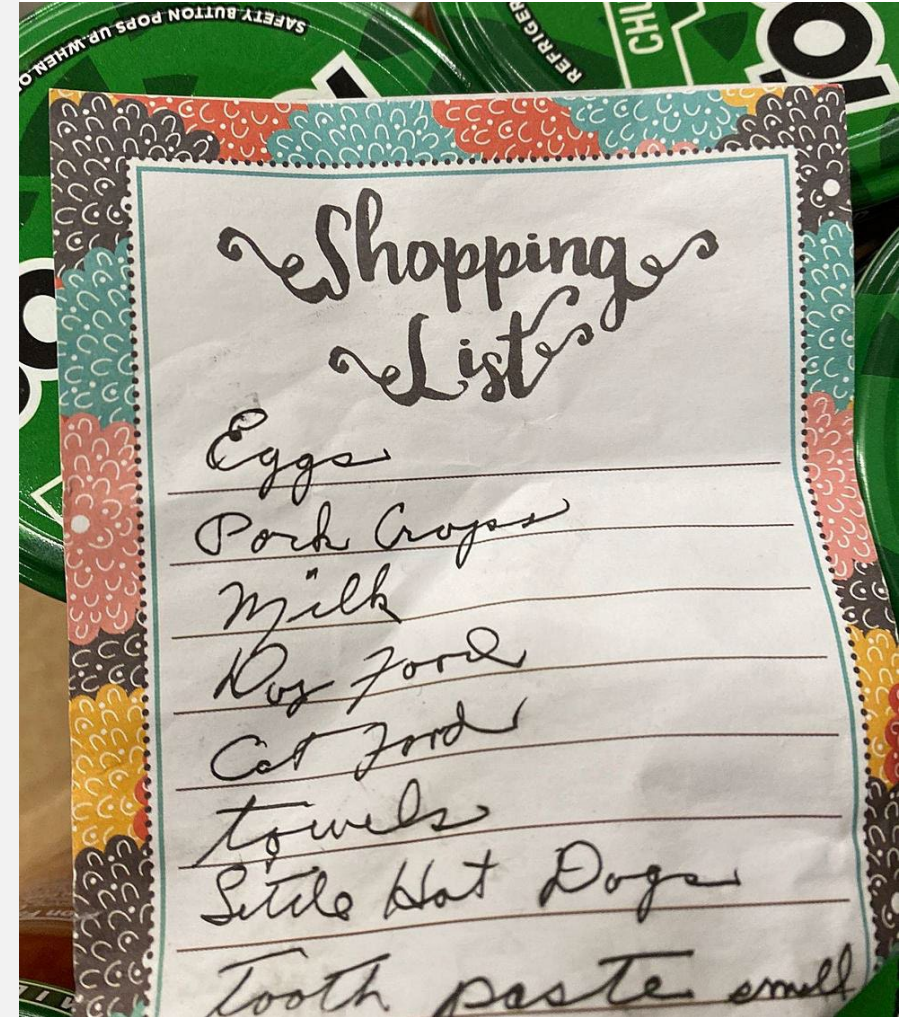 SAFETY BUTTON POPS UP WHEN O
REFRIGER
CHU
Shopping
List
Eggs
Pork Crops
Milk
Dog Food
Cat Food
towels
Little Hot Dogs
Tooth paste small